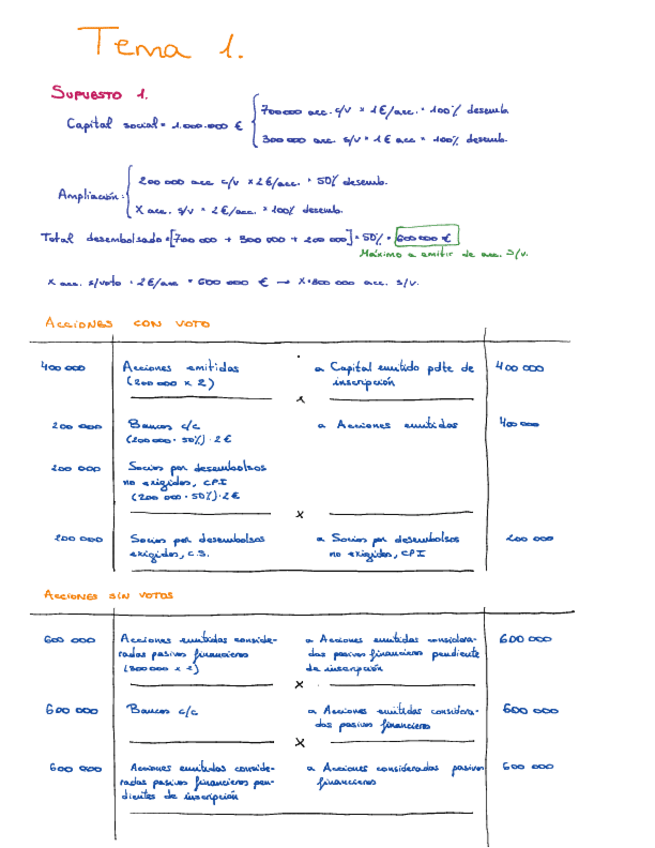 Tema 1.
SUPUESTO 1.
Capital social = 1.000.000 €
700000 acc. c/v × 1€/acc. · 100% desemb.
300 000 acc. s/v · 1€ acc = 100% desemb.
Ampliación:
200 000 acc c/v × 2€/acc. · 50% desemb.
X acc. s/v · 2€/acc. = 100% desemb.
Total desembolsado = [700 000 + 300 000 + 200 000] · 50% = 600 000 €
Máximo a emitir de acc. s/v.
X acc. s/voto · 2€/acc = 600 000 € → X = 300 000 acc. s/v.
ACCIONES CON VOTO
400 000 Acciones emitidas a Capital emitido pdte de 400 000
(200 000 x 2) inscripción
x
200 000 Bancos c/c a Acciones emitidas 400 000
(200 000 · 50%) · 2€
200 000 Socios por desembolsos
no exigidos, CPI
(200 000 · 50%) · 2€
x
200 000 Socios por desembolsos a Socios por desembolsos 200 000
exigidos, C.S. no exigidos, CPI
ACCIONES SIN VOTOS
600 000 Acciones emitidas conside- a Acciones emitidas considera- 600 000
radas pasivos financieros das pasivos financieros pendiente
(300 000 x 2) de inscripción
x
600 000 Bancos c/c a Acciones emitidas considera- 600 000
das pasivos financieros
x
600 000 Acciones emitidas conside- a Acciones consideradas pasivos 600 000
radas pasivos financieros pen- financieros
dientes de inscripción